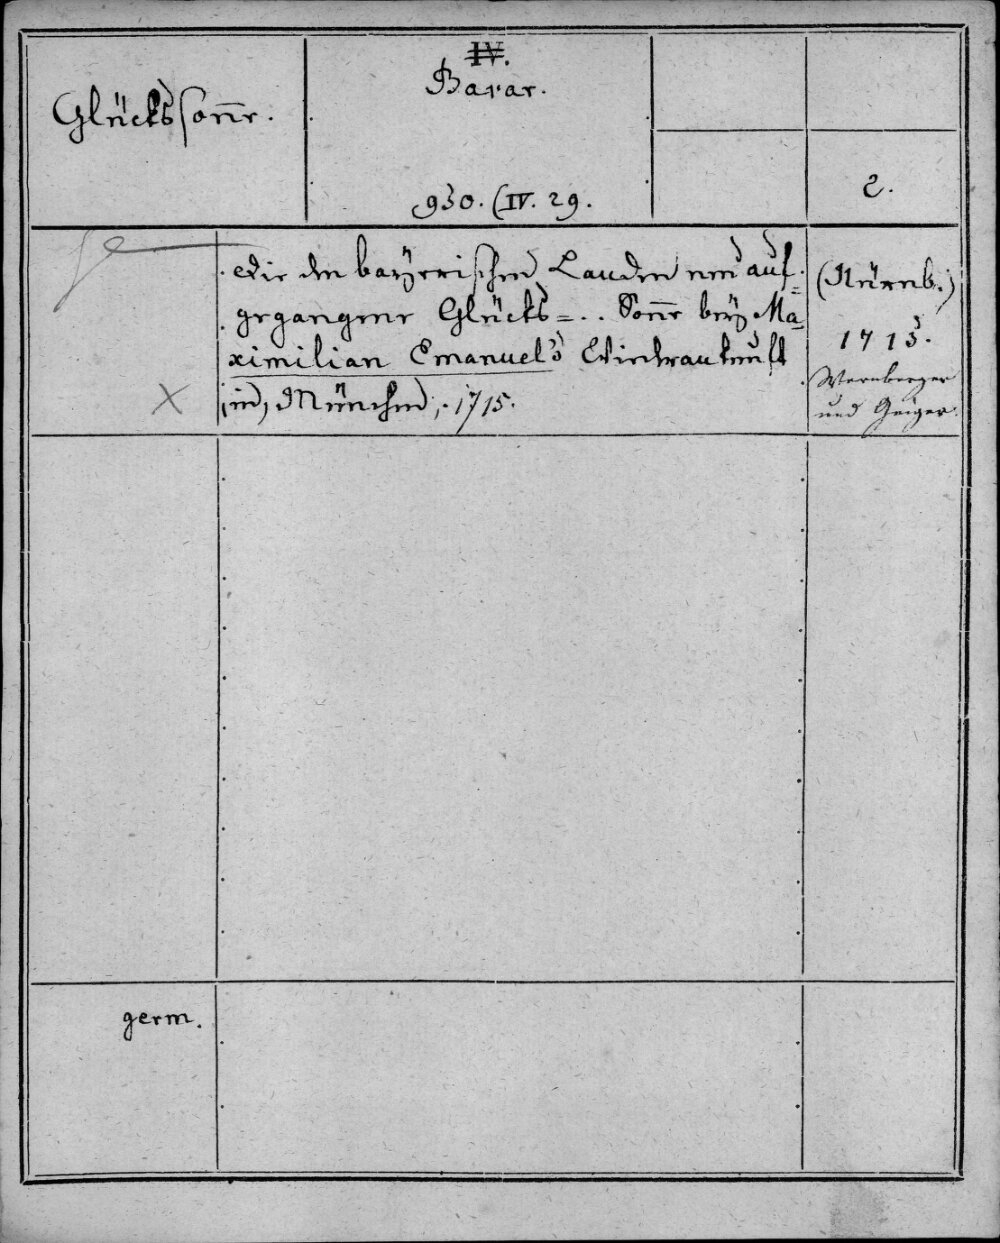 Glückssonne.
IV.
Bavar.
930. (IV. 29.
2.
Die den bayerischen Landen neu auf-
gegangene Glücks=... Sonne bey Ma-
ximilian Emanuel's Wiederankunft
in, München, 1715.
(Nürnb.)
1715.
Wernberger
und Geiger.
X
germ.